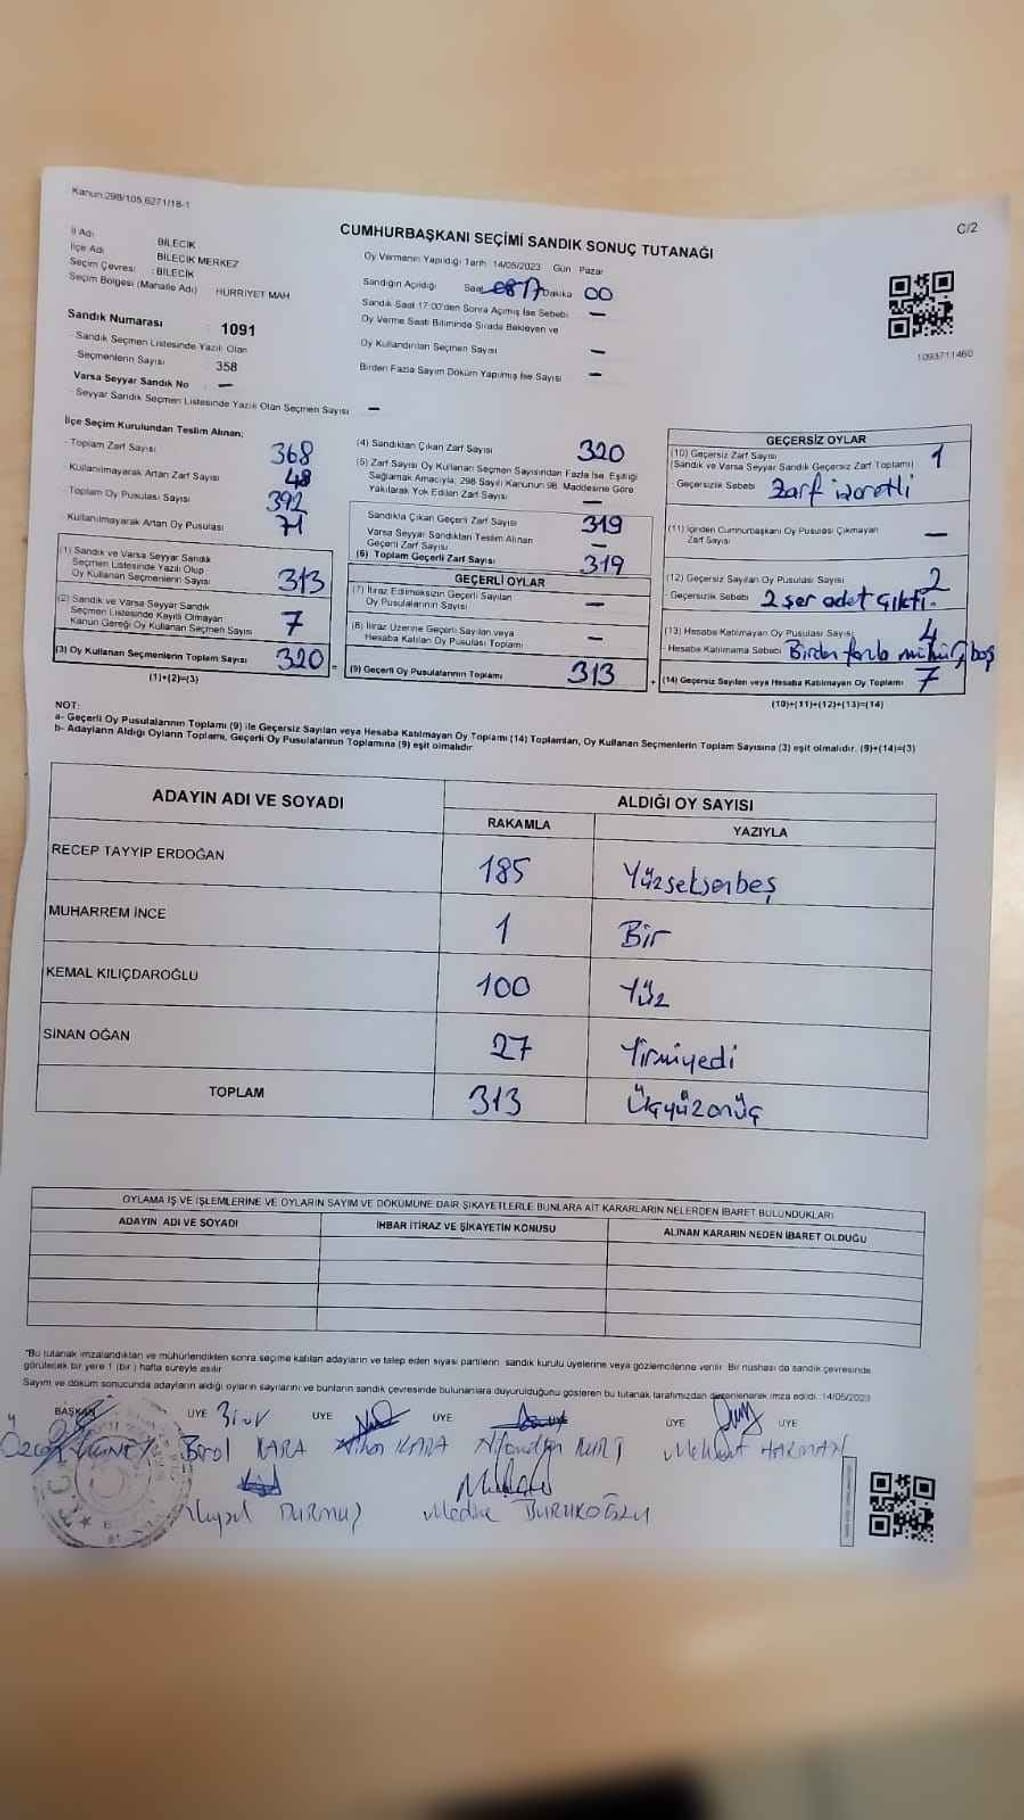 Kanun:298/105,6271/18-1
C/2
CUMHURBAŞKANI SEÇİMİ SANDIK SONUÇ TUTANAĞI
İl Adı : BİLECİK
İlçe Adı : BİLECİK MERKEZ
Seçim Çevresi : BİLECİK
Seçim Bölgesi (Mahalle Adı) HÜRRİYET MAH
Sandık Numarası 1091
Sandık Seçmen Listesinde Yazılı Olan
Seçmenlerin Sayısı 358
Varsa Seyyar Sandık No : —
Seyyar Sandık Seçmen Listesinde Yazılı Olan Seçmen Sayısı —
Oy Vermenin Yapıldığı Tarih 14/05/2023 Gün Pazar
Sandığın Açıldığı Saat 17 Dakika 00
Sandık Saat 17:00'den Sonra Açılmış İse Sebebi —
Oy Verme Saati Bitiminde Sırada Bekleyen ve
Oy Kullandırılan Seçmen Sayısı —
Birden Fazla Sayım Döküm Yapılmış İse Sayısı —
1093711460
İlçe Seçim Kurulundan Teslim Alınan;
- Toplam Zarf Sayısı 368
- Kullanılmayarak Artan Zarf Sayısı 48
- Toplam Oy Pusulası Sayısı 392
- Kullanılmayarak Artan Oy Pusulası 71
(1) Sandık ve Varsa Seyyar Sandık
Seçmen Listesinde Yazılı Olup
Oy Kullanan Seçmenlerin Sayısı 313
(2) Sandık ve Varsa Seyyar Sandık
Seçmen Listesinde Kayıtlı Olmayan
Kanun Gereği Oy Kullanan Seçmen Sayısı 7
(3) Oy Kullanan Seçmenlerin Toplam Sayısı 320 =
(1)+(2)=(3)
(4) Sandıktan Çıkan Zarf Sayısı 320
(5) Zarf Sayısı Oy Kullanan Seçmen Sayısından Fazla İse, Eşitliği
Sağlamak Amacıyla, 298 Sayılı Kanunun 98. Maddesine Göre
Yakılarak Yok Edilen Zarf Sayısı —
Sandıkta Çıkan Geçerli Zarf Sayısı 319
Varsa Seyyar Sandıktan Teslim Alınan
Geçerli Zarf Sayısı —
(6) Toplam Geçerli Zarf Sayısı 319
GEÇERLİ OYLAR
(7) İtiraz Edilmeksizin Geçerli Sayılan
Oy Pusulalarının Sayısı —
(8) İtiraz Üzerine Geçerli Sayılan veya
Hesaba Katılan Oy Pusulası Toplamı —
(9) Geçerli Oy Pusulalarının Toplamı 313 +
GEÇERSİZ OYLAR
(10) Geçersiz Zarf Sayısı 1
(Sandık ve Varsa Seyyar Sandık Geçersiz Zarf Toplamı)
- Geçersizlik Sebebi Zarf
(11) İçinden Cumhurbaşkanı Oy Pusulası Çıkmayan
Zarf Sayısı —
(12) Geçersiz Sayılan Oy Pusulası Sayısı 2
- Geçersizlik Sebebi 2 şer adet çıktı.
(13) Hesaba Katılmayan Oy Pusulası Sayısı 4
- Hesaba Katılmama Sebebi Birden fazla mühür, boş
(14) Geçersiz Sayılan veya Hesaba Katılmayan Oy Toplamı 7
(10)+(11)+(12)+(13)=(14)
NOT:
a- Geçerli Oy Pusulalarının Toplamı (9) ile Geçersiz Sayılan veya Hesaba Katılmayan Oy Toplamı (14) Toplamları, Oy Kullanan Seçmenlerin Toplam Sayısına (3) eşit olmalıdır. (9)+(14)=(3)
b- Adayların Aldığı Oyların Toplamı, Geçerli Oy Pusulalarının Toplamına (9) eşit olmalıdır
ADAYIN ADI VE SOYADI ALDIĞI OY SAYISI
RAKAMLA YAZIYLA
RECEP TAYYİP ERDOĞAN 185 Yüzseksenbeş
MUHARREM İNCE 1 Bir
KEMAL KILIÇDAROĞLU 100 Yüz
SİNAN OĞAN 27 Yirmiyedi
TOPLAM 313 Üçyüzonüç
OYLAMA İŞ VE İŞLEMLERİNE VE OYLARIN SAYIM VE DÖKÜMÜNE DAİR ŞİKAYETLERLE BUNLARA AİT KARARLARIN NELERDEN İBARET BULUNDUKLARI
ADAYIN ADI VE SOYADI İHBAR İTİRAZ VE ŞİKAYETİN KONUSU ALINAN KARARIN NEDEN İBARET OLDUĞU
"Bu tutanak imzalandıktan ve mühürlendikten sonra seçime katılan adayların ve talep eden siyasi partilerin sandık kurulu üyelerine veya gözlemcilerine verilir. Bir nüshası da sandık çevresinde
görülecek bir yere 1 (bir) hafta süreyle asılır.
Sayım ve döküm sonucunda adayların aldığı oyların sayılarını ve bunların sandık çevresinde bulunanlara duyurulduğunu gösteren bu tutanak tarafımızdan düzenlenerek imza edildi. 14/05/2023
BAŞKAN ÜYE ÜYE ÜYE ÜYE ÜYE
Birol KARA KARA KURT Mehmet HARMAN
Veysel DURMUŞ BURUKOĞLU